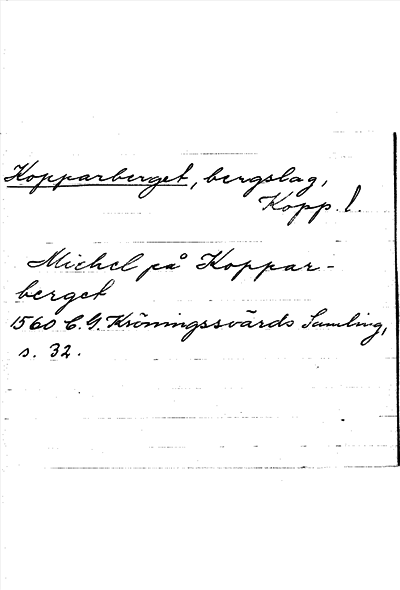 Kopparberget, bergslag,
Kopp. l.
Michel på Koppar-
berget
1560 C. G. Kröningssvärds Samling,
s. 32.